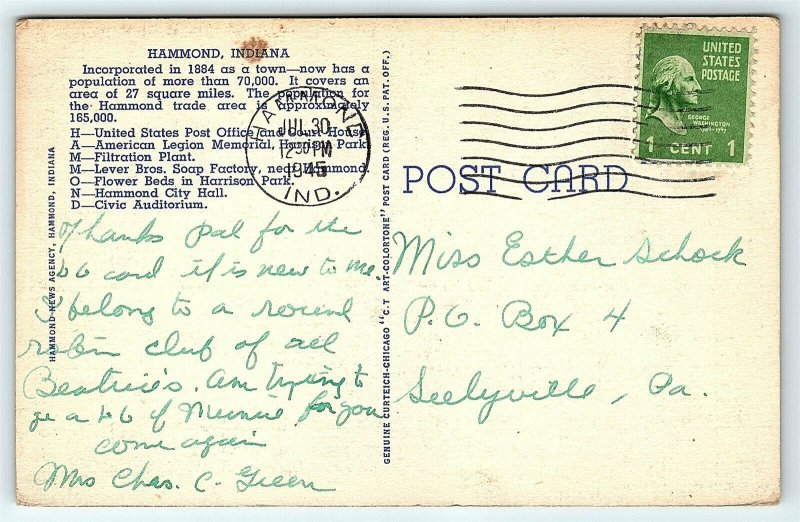 HAMMOND, INDIANA
Incorporated in 1884 as a town—now has a
population of more than 70,000. It covers an
area of 27 square miles. The population for
the Hammond trade area is approximately
165,000.
H—United States Post Office and Court House
A—American Legion Memorial, Harrison Park.
M—Filtration Plant.
M—Lever Bros. Soap Factory, near Hammond.
O—Flower Beds in Harrison Park.
N—Hammond City Hall.
D—Civic Auditorium.
HAMMOND NEWS AGENCY, HAMMOND, INDIANA
Thanks Pal for the
card it is new to me.
I belong to a round
robin club of all
Beatrice's. Am trying to
ge a of Muncie for you
come again
Mrs Chas. C. Green
GENUINE CURTEICH-CHICAGO "C.T. ART-COLORTONE" POST CARD (REG. U.S. PAT. OFF.)
HAMMOND
JUL 30
12-30 PM
1945
IND.
UNITED
STATES
POSTAGE
GEORGE
WASHINGTON
1 CENT 1
POST CARD
Miss Esther Schock
P.O. Box 4
Seelyville, Pa.